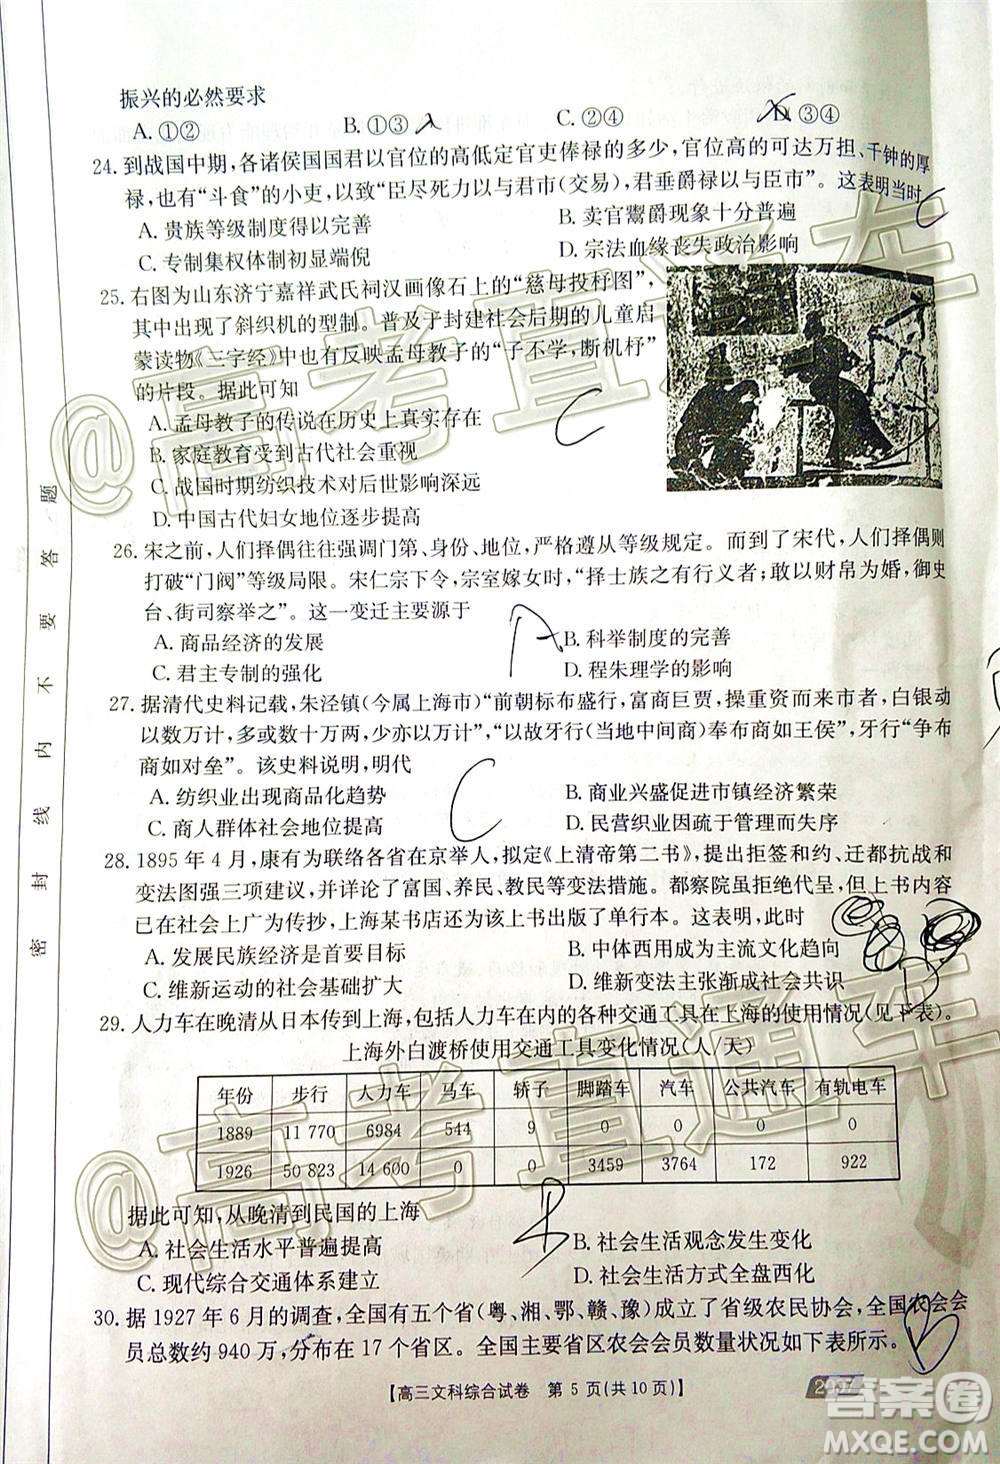 振兴的必然要求
A. ①② B. ①③ C. ②③ D. ③④
24. 到战国中期，各诸侯国国君以官位的高低定官吏俸禄的多少，官位高的可达万担、千钟的厚
禄，也有“斗食”的小吏，以致“臣尽死力以与君市（交易），君垂爵禄以与臣市”。这表明当时
A. 贵族等级制度得以完善 B. 卖官鬻爵现象十分普遍
C. 专制集权体制初显端倪 D. 宗法血缘丧失政治影响
25. 右图为山东济宁嘉祥武氏祠汉画像石上的“慈母投杼图”，
其中出现了斜织机的型制。普及于封建社会后期的儿童启
蒙读物《三字经》中也有反映孟母教子的“子不学，断机杼”
的片段。据此可知
A. 孟母教子的传说在历史上真实存在
B. 家庭教育受到古代社会重视
C. 战国时期纺织技术对后世影响深远
D. 中国古代妇女地位逐步提高
C
C
26. 宋之前，人们择偶往往强调门第、身份、地位，严格遵守等级规定。而到了宋代，人们择偶则
打破“门阀”等级局限。宋仁宗下令，宗室嫁女时，“择士族之有行义者；敢以财帛为婚，御史
台、街司察举之”。这一变迁主要源于
A. 商品经济的发展 B. 科举制度的完善
C. 君主专制的强化 D. 程朱理学的影响
A
27. 据清代史料记载，朱泾镇（今属上海市）“前朝标布盛行，富商巨贾，操重资而来市者，白银动
以数万计，多或数十万两，少亦以万计”，“以故牙行（当地中间商）奉布商如王侯”，牙行“争布
商如对垒”。该史料说明，明代
A. 纺织业出现商品化趋势 B. 商业兴盛促进市镇经济繁荣
C. 商人群体社会地位提高 D. 民营织业因疏于管理而失序
C
28. 1895 年 4 月，康有为联络各省在京举人，拟定《上清帝第二书》，提出拒和、迁都抗战和
变法图强三项建议，并详论了富国、养民、教民等变法措施。都察院虽拒绝代呈，但上书内容
已在社会上广为传抄，上海某书店还为该上书出版了单行本。这表明，此时
A. 发展民族经济是首要目标 B. 中体西用成为主流文化趋向
C. 维新运动的社会基础扩大 D. 维新变法主张渐成社会共识
29. 人力车在晚清从日本传到上海，包括人力车在内的各种交通工具在上海的使用情况（见下表）。
上海外白渡桥使用交通工具变化情况（人/天）
年份 步行 人力车 马车 轿子 脚踏车 汽车 公共汽车 有轨电车
1889 11 770 6984 544 9 0 0 0 0
1926 50 823 14 600 0 0 3459 3764 172 922
据此可知，从晚清到民国的上海
A. 社会生活水平普遍提高 B. 社会生活观念发生变化
C. 现代综合交通体系建立 D. 社会生活方式全盘西化
B
30. 据 1927 年 6 月的调查，全国有五个省（粤、湘、鄂、赣、豫）成立了省级农民协会，全国农会会
员总数约 940 万，分布在 17 个省区。全国主要省区农会会员数量状况如下表所示。
B
【高三文科综合试卷 第 5 页（共 10 页）】
密 封 线 内 不 要 答 题
@高考直通车
@高考直通车
答案圈
MXQE.COM